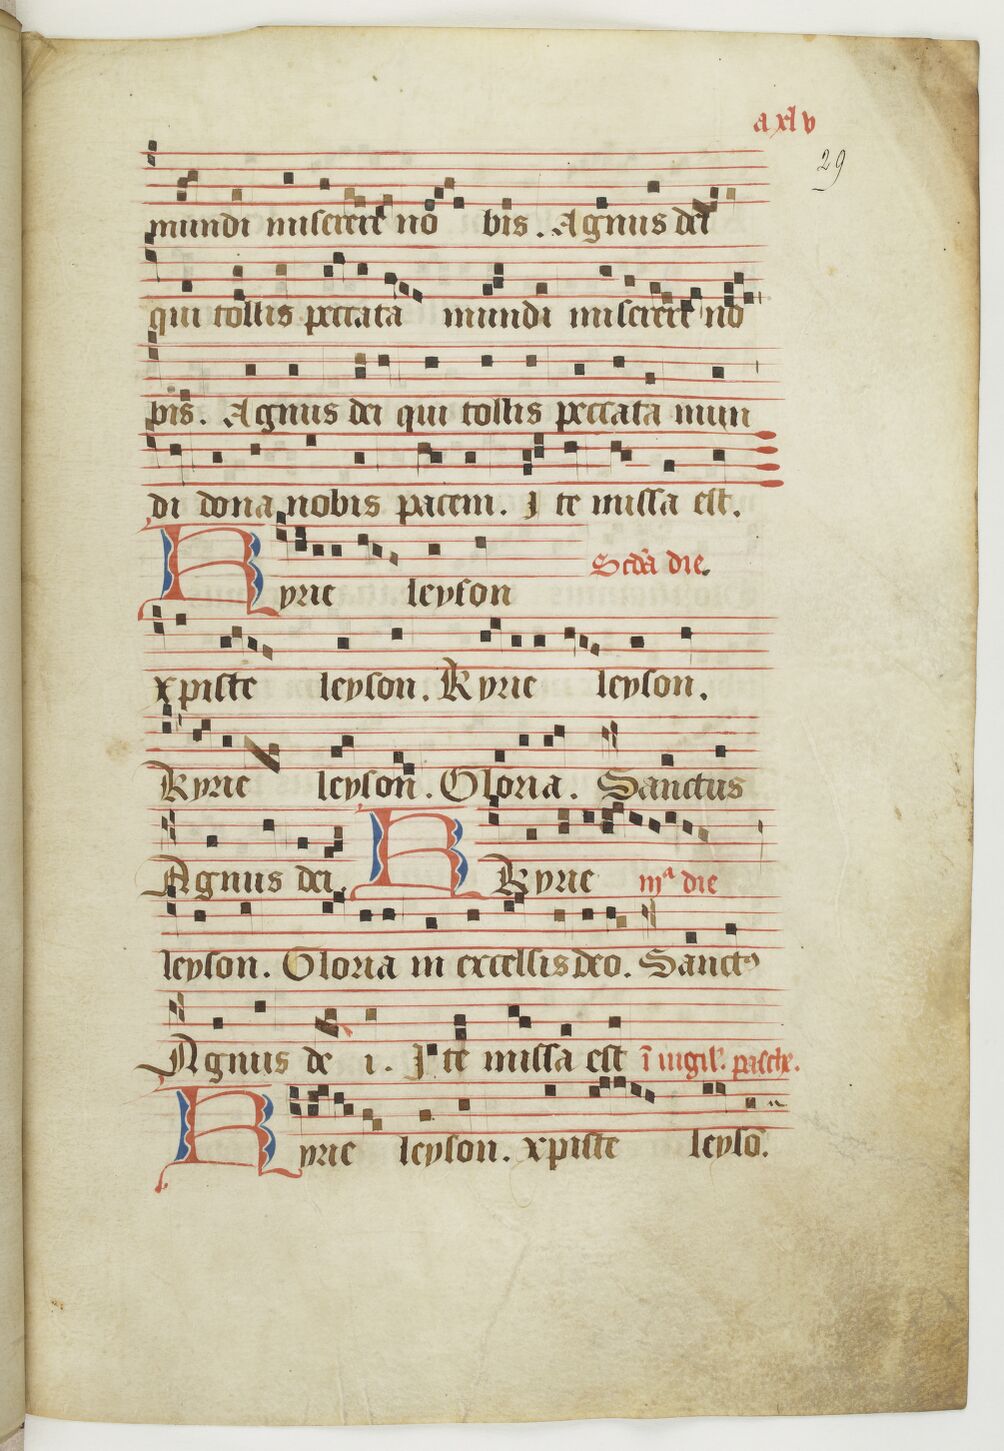 a xl v
29
mundi miserere no bis. Agnus dei
qui tollis peccata mundi miserere no
bis. Agnus dei qui tollis peccata mun
di dona nobis pacem. Ite missa est.
Scďa die.
Kyrie leyson
xpiste leyson. Kyrie leyson.
Kyrie leyson. Gloria. Sanctus
Agnus dei. Kyrie iijᵃ die
leyson. Gloria in excelsis deo. Sanctꝰ
Agnus de i. Ite missa est ī uigiľ. pasche.
Kyrie leyson. xpiste leysō.